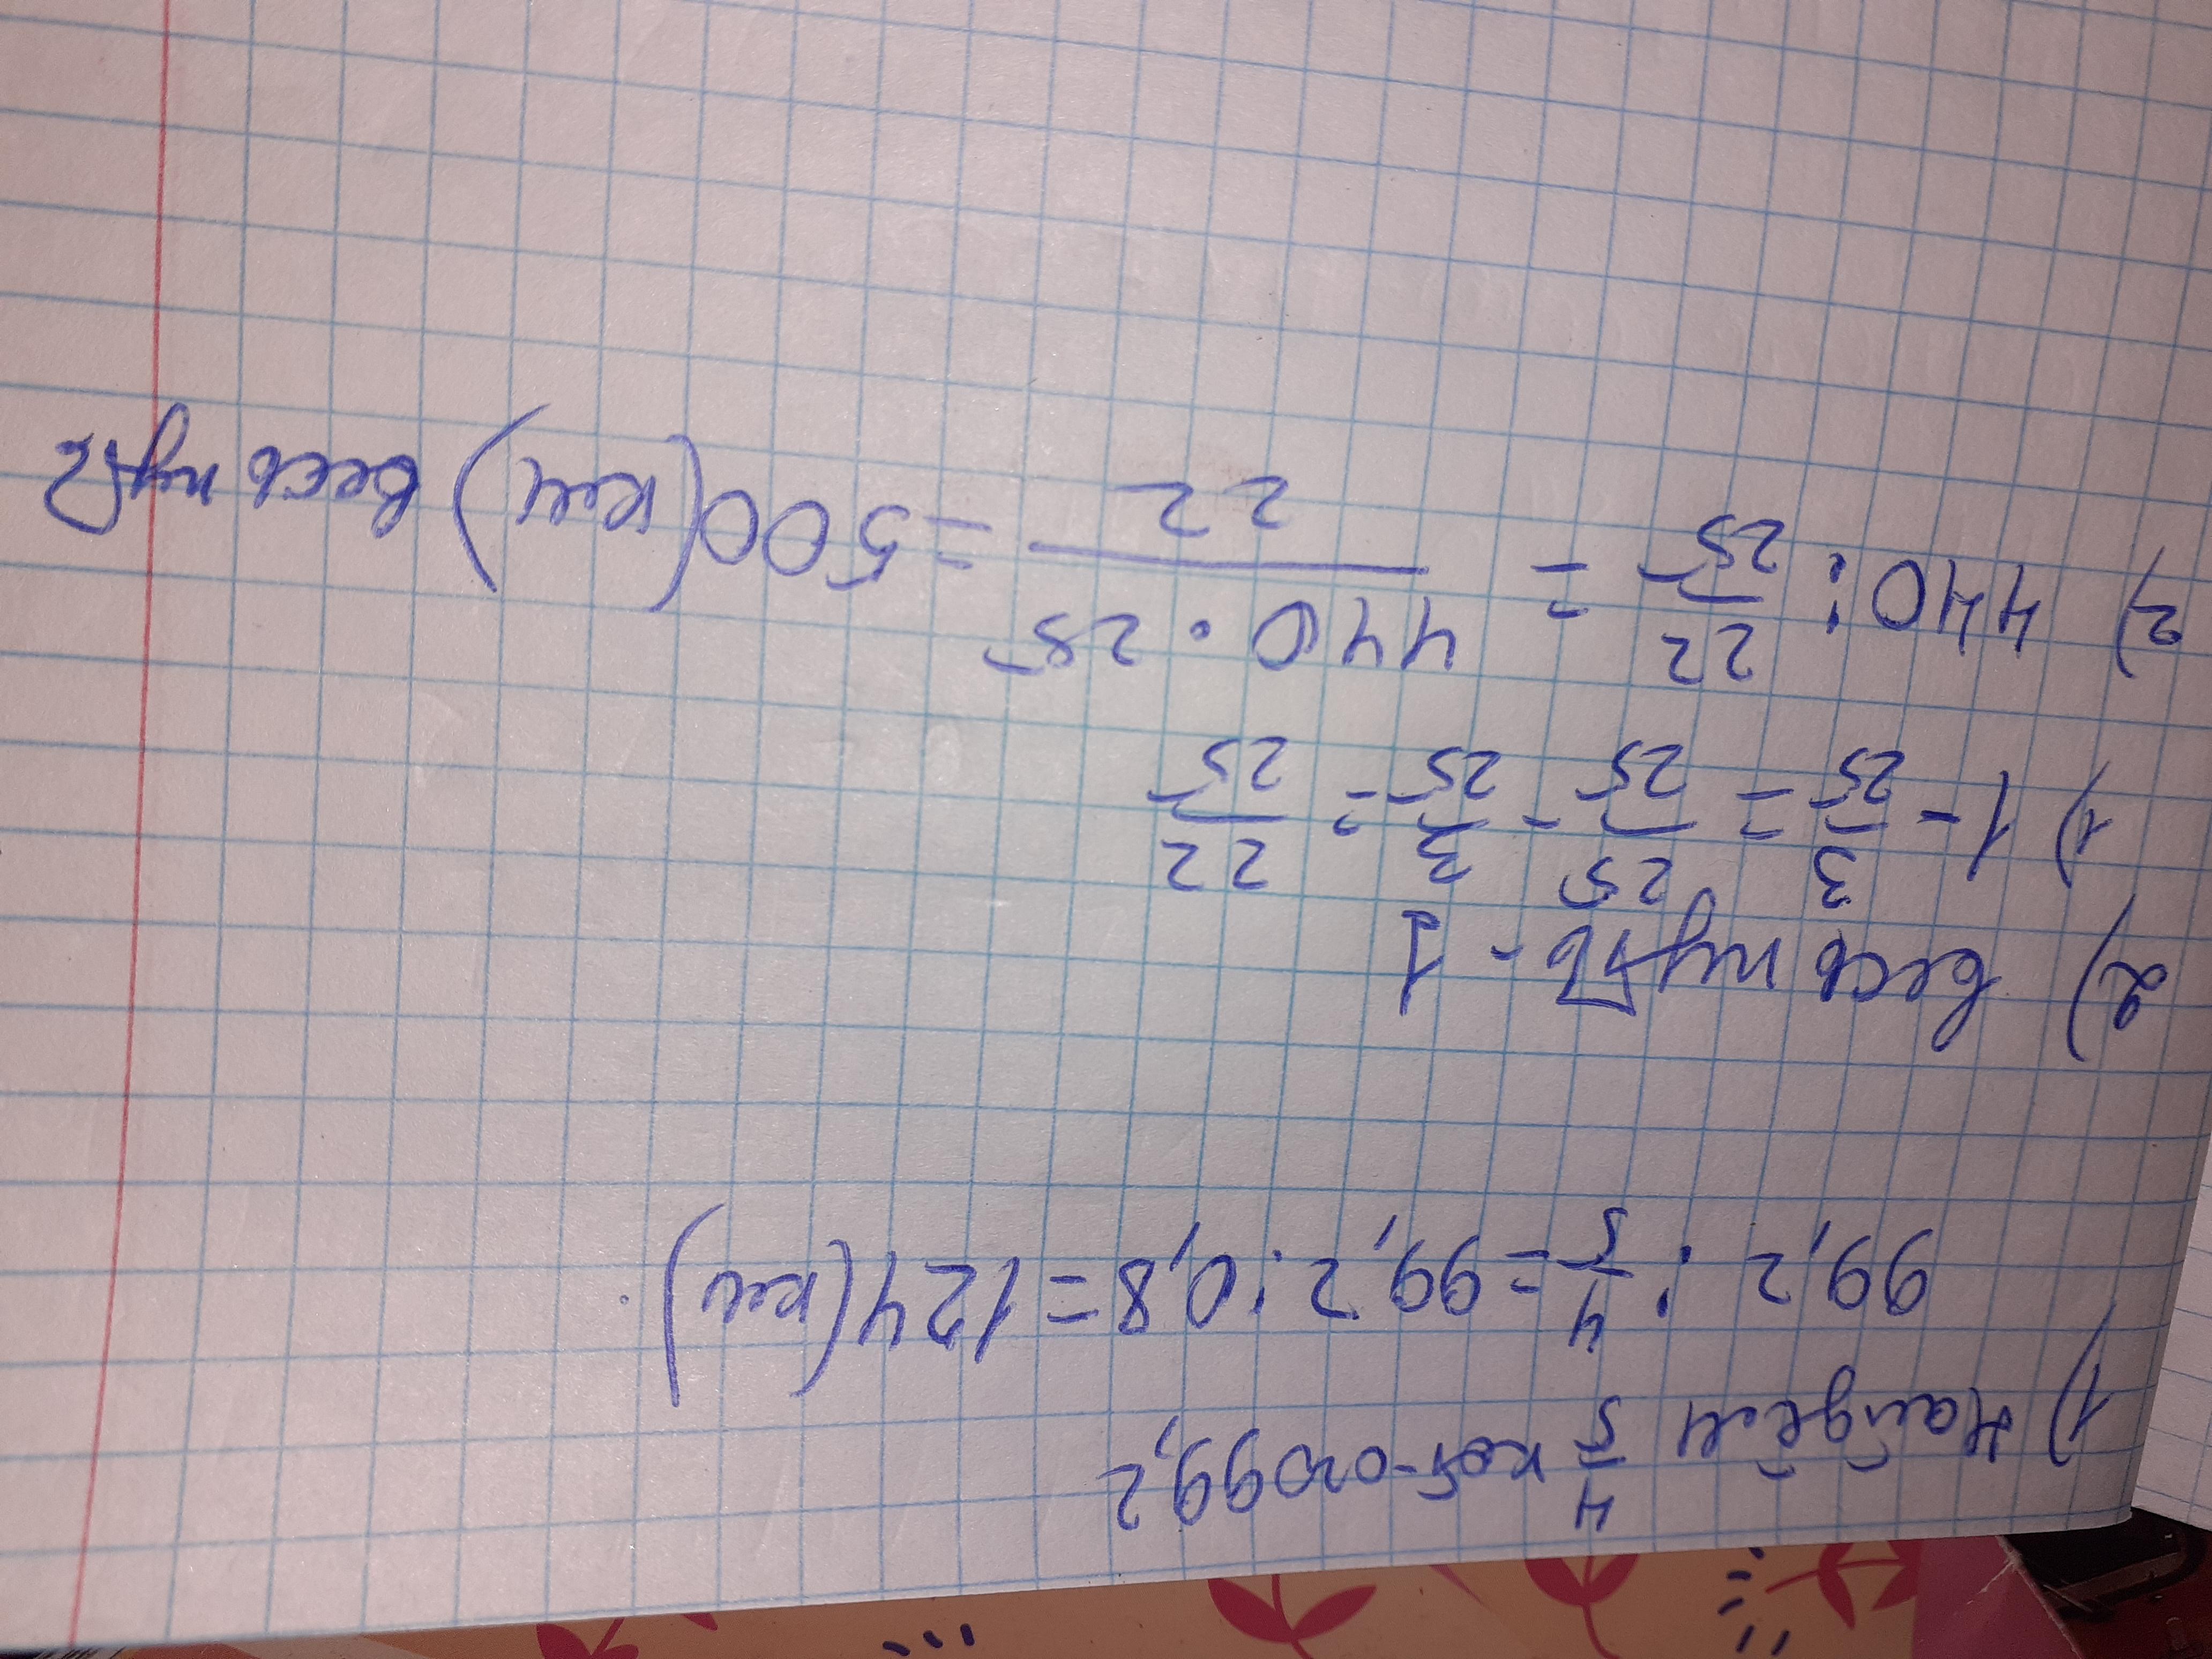 1) Найдём 4/5 кот-ого 99,2
99,2 : 4/5 = 99,2 : 0,8 = 124 (км)
2) весь путь - 1
1) 1 - 3/25 = 25/25 - 3/25 = 22/25
2) 440 : 22/25 = 440 · 25 / 22 = 500 (км) весь путь